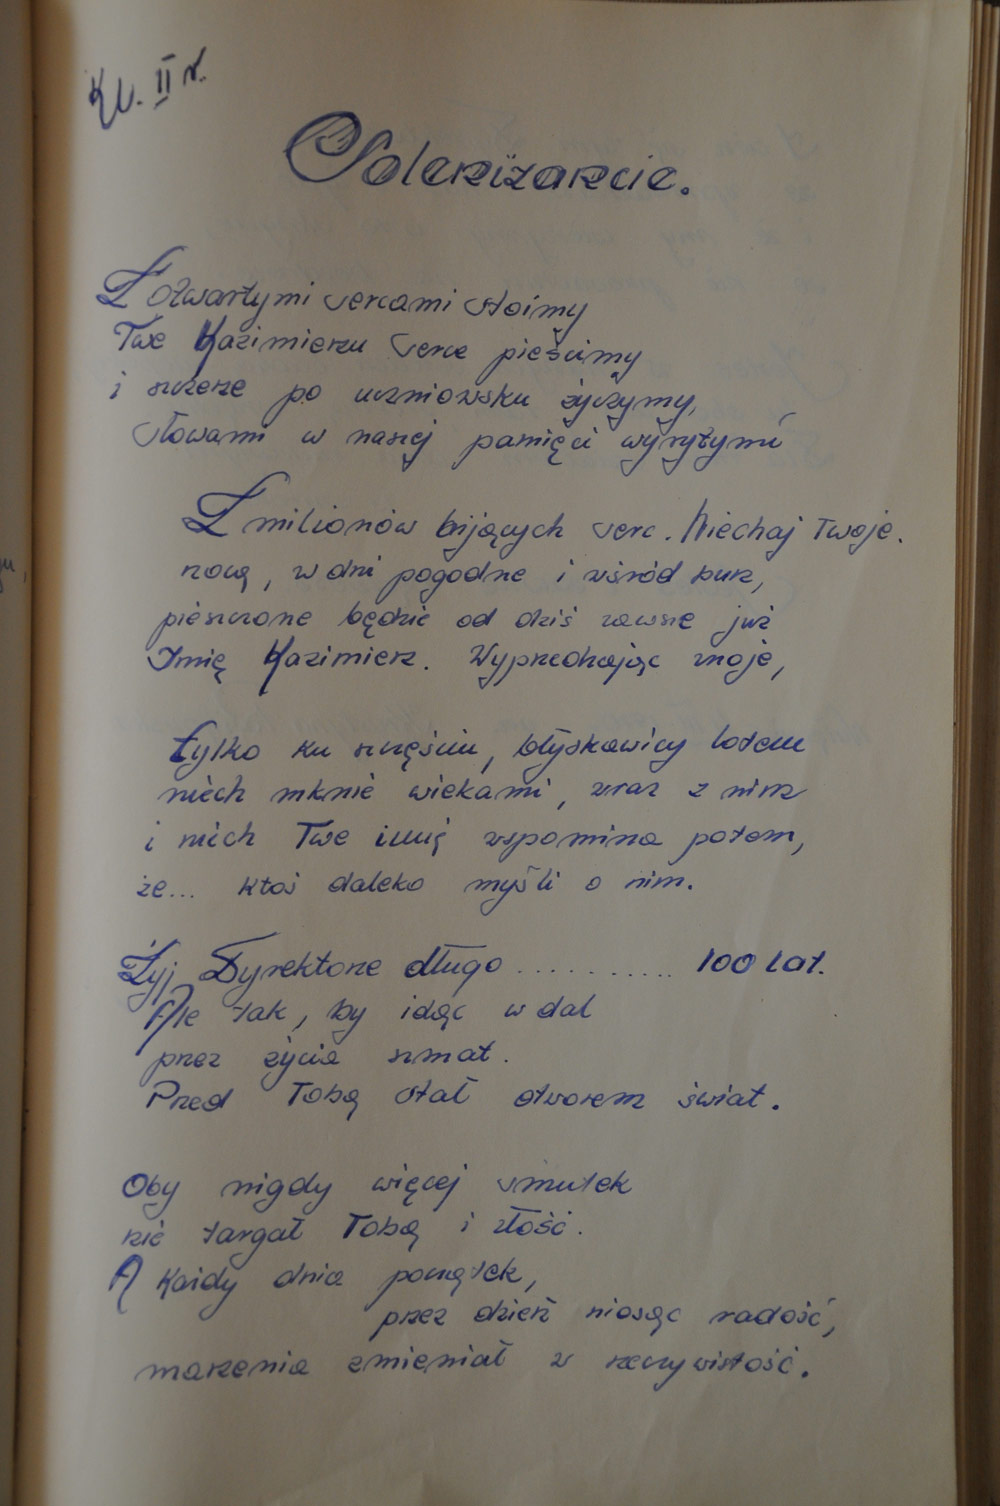 Kl. II r.
Solenizancie.
Z otwartymi sercami stoimy
Twe Kazimierzu serce pieścimy
i szczerze po uczniowsku życzymy,
słowami w naszej pamięci wyrytymi
Z milionów bijących serc. Niechaj Twoje.
nocą, w dni pogodne i wśród burz,
pieszczone będzie od dziś zawsze już
Imię Kazimierz. Wyprzedzając znoje,
tylko ku szczęściu, błyskawicy lotem
niech mknie wiekami, wraz z nim
i niech Twe imię wspomina potem,
że... ktoś daleko myśli o nim.
Żyj Dyrektorze długo .......... 100 lat.
Ale tak, by idąc w dal
przez życia szmat.
Przed Tobą stał otworem świat.
Oby nigdy więcej smutek
nie targał Tobą i złość.
A każdy dnia początek,
przez dzień niosąc radość,
marzenia zmieniał w rzeczywistość.